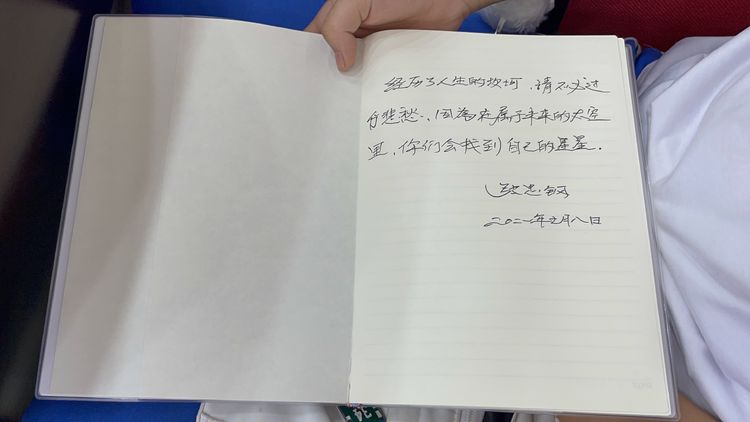 经历了人生的坎坷，请不必过
分悲愁，因为在属于未来的天空
里，你们会找到自己的星星。
忠
二〇二一年五月八日